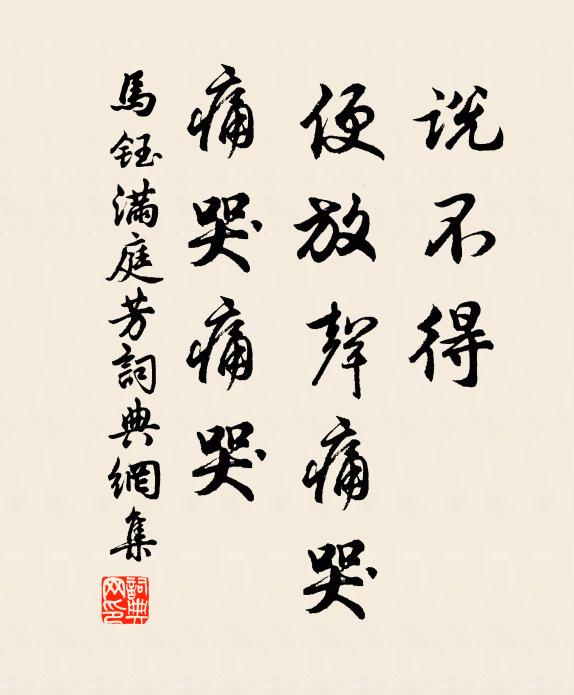 說不得
便放聲痛哭
痛哭痛哭
馬鈺滿庭芳詞典網集
詞典
网印